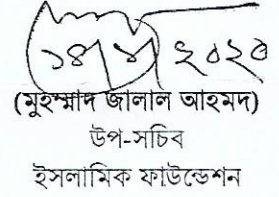 ১৪/৮/২০২০
(মুহম্মাদ জালাল আহমদ)
উপ-সচিব
ইসলামিক ফাউন্ডেশন